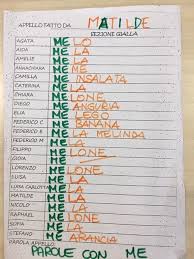 APPELLO FATTO DA MATILDE
SEZIONE GIALLA
AGATA MELO
AIDA MELA
AMELIE MELA
ANNACHIARA ME
CAMILLA ME INSALATA
CATERINA MELA
CHIARA MELONE
DIEGO ME ANGURIA
ELIA ME LEGO
FEDERICO C ME BANANA
FEDERICO M MELA MELINDA
FILIPPO MELA
GIOIA MELONE
LORENZO MELONE
LUISA MELA
LUISA CARLOTTA MELA
MATILDE MELA
NICOLO' MELA
RAPHAEL MELONE
SOFIA MELA
STEFANO ME ARANCIA
PAROLA APPELLO:
PAROLE CON ME